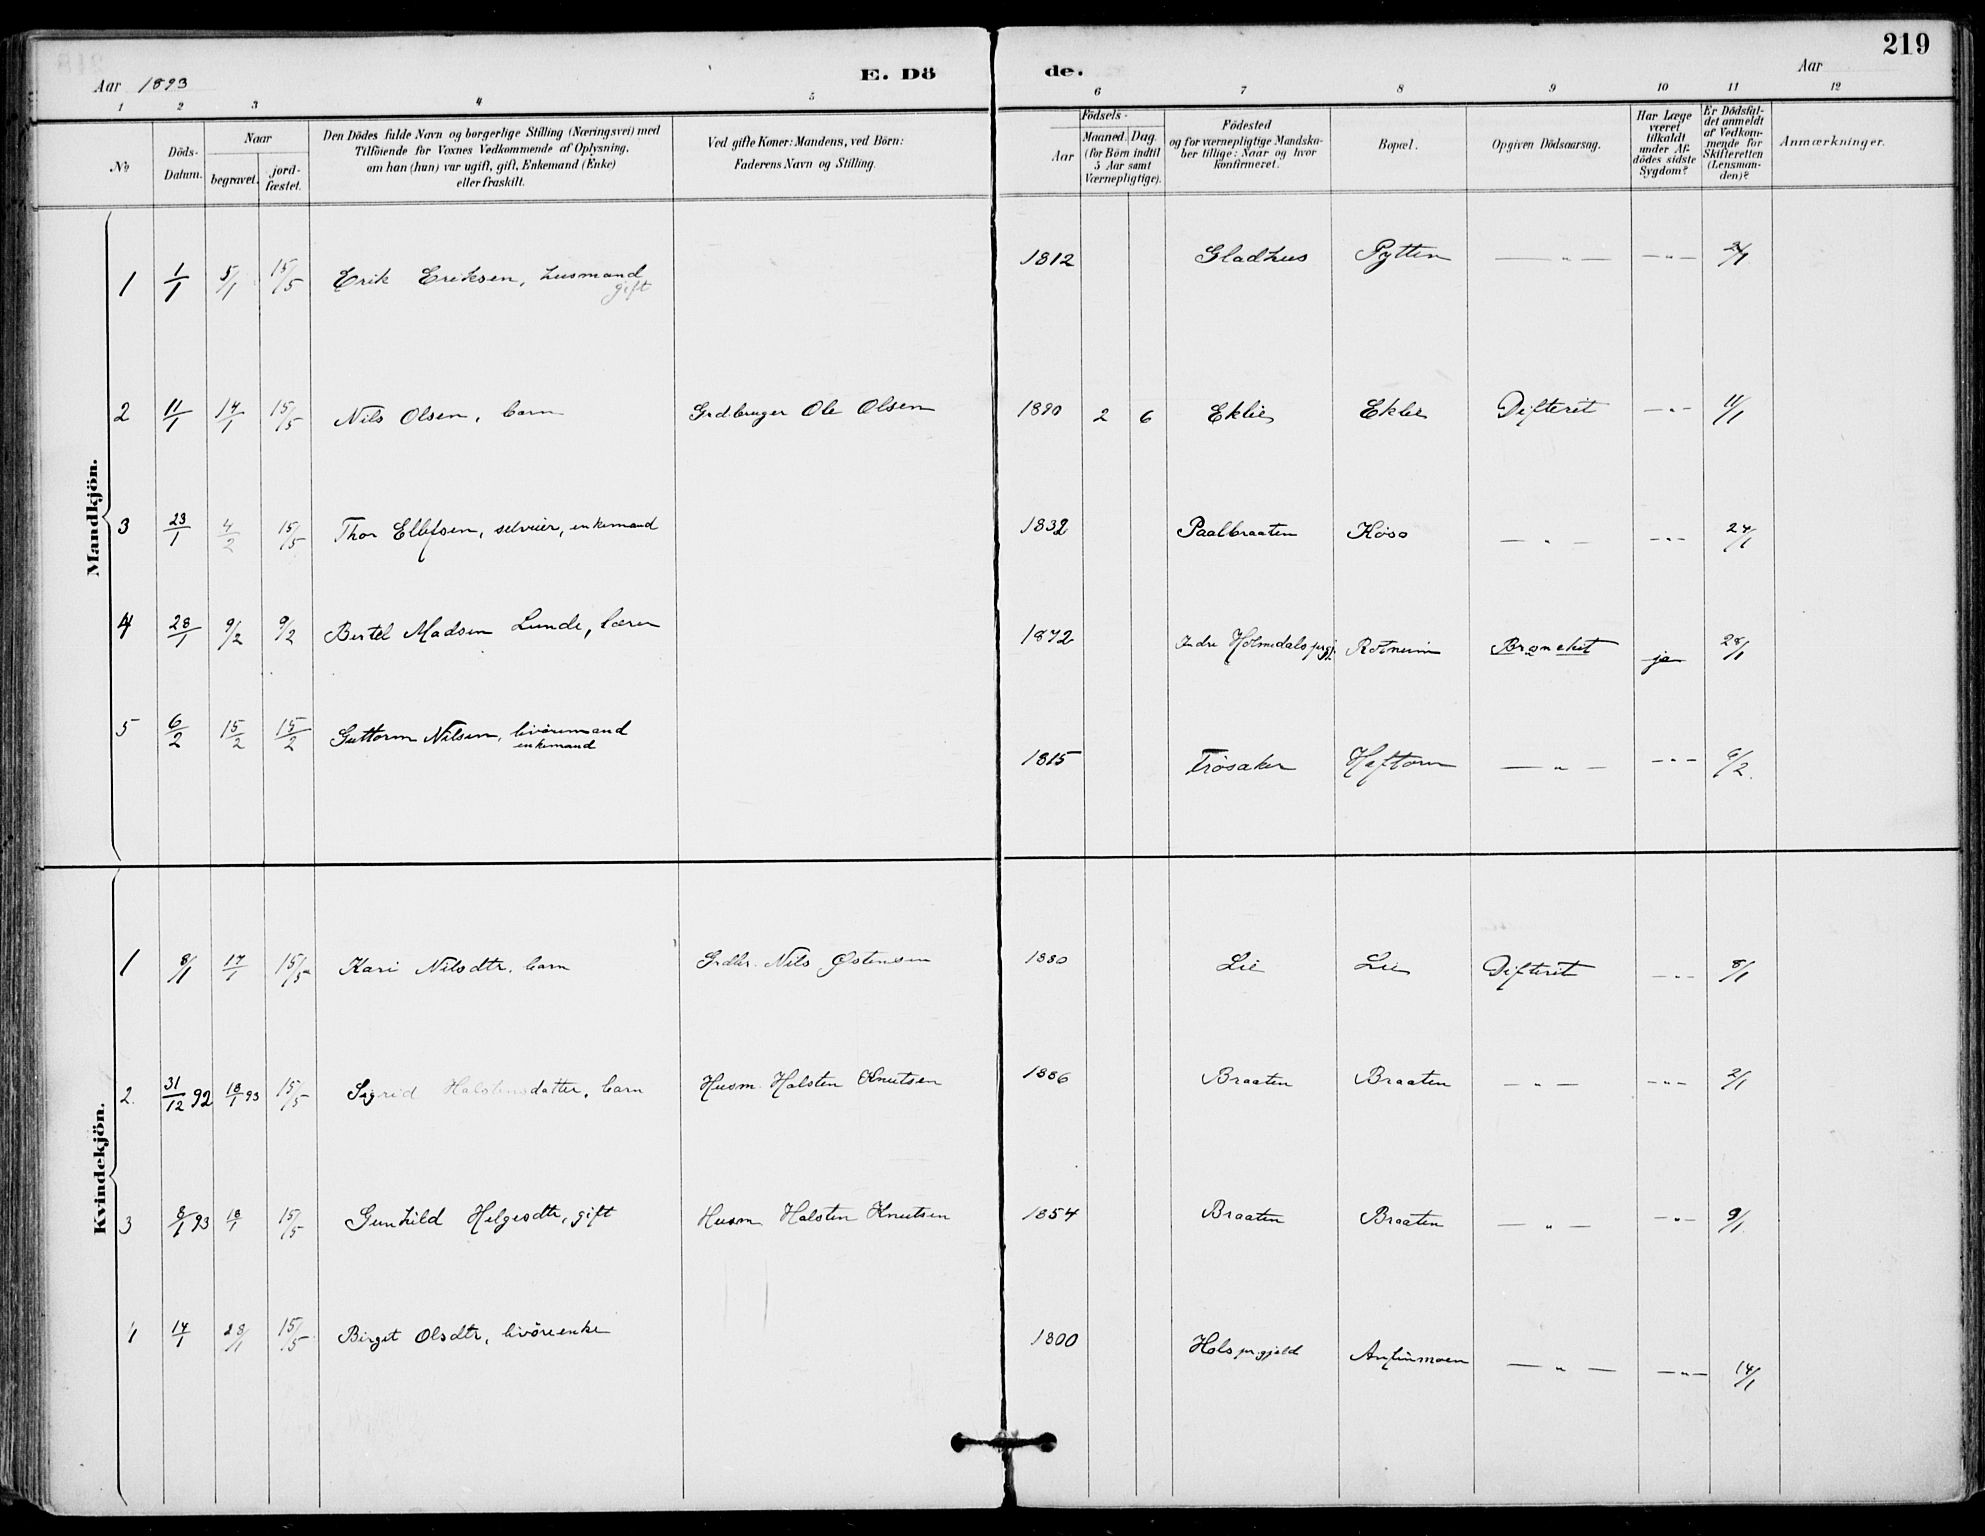 219
Aar 1893 E. Dö de. Aar
1 2 3 4 5 6 7 8 9 10 11 12
No
Döds-Datum.
Naar
begravet. jord-fæstet.
Den Dödes fulde Navn og borgerlige Stilling (Næringsvei) med
Tilföiende for Voxnes Vedkommende af Oplysning,
om han (hun) var ugift, gift, Enkemand (Enke)
eller fraskilt.
Ved gifte Koner: Mandens, ved Börn:
Faderens Navn og Stilling.
Födsels-
Aar Maaned. Dag.
(for Börn indtil
5 Aar samt
Værnepligtige).
Födested
og for værnepligtige Mandska-
ber tillige: Naar og hvor
konfirmeret.
Bopæl.
Opgiven Dödsaarsag.
Har Læge
været
tilkaldt
under Af-
dödes sidste
Sygdom?
Er Dödsfal-
det anmeldt
af Vedkom-
mende for
Skifteretten
(Lensman-
den)?
Anmærkninger.
Mandkjön.
1 1/1 5/1 15/5 Erik Eriksen, husmand 1812 Gladhus Pytten — „ — — „ — 2/1
gift
2 11/1 14/1 15/5 Nils Olsen, barn Grdbruger Ole Olsen 1890 2 6 Eklie Eklie Difterit — „ — 11/1
3 23/1 4/2 15/5 Thor Ellefsen, selveier, enkemand 1832 Paalbraaten Köso — „ — — „ — 24/1
4 28/1 9/2 9/2 Bertel Madsen Lunde, lærer 1872 Indre Holmedals prgj. Rotneim Bronckit ja 28/1
5 6/2 15/2 15/2 Guttorm Nilsen, livöremand
enkemand
1815 Trösaker Haftorn — „ — — „ — 6/2.
Kvindekjön.
1 8/1 17/1 15/5 Kari Nilsdtr. barn Grdbr. Nils Östensen 1880 Lie Lie Difterit — „ — 8/1
2. 31/12 92 18/1 93 15/5 Sigrid Halstensdatter, barn Husm. Halsten Knutsen 1886 Braaten Braaten — „ — — „ — 2/1
3 8/1 93 18/1 15/5 Gunhild Helgesdtr, gift Husm Halsten Knutsen 1854 Braaten Braaten — „ — — „ — 9/1
4 14/1 28/1 15/5 Birgit Olsdtr, livöreenke 1800 Hols pr.gjeld Anfinmoen — „ — — „ — 14/1